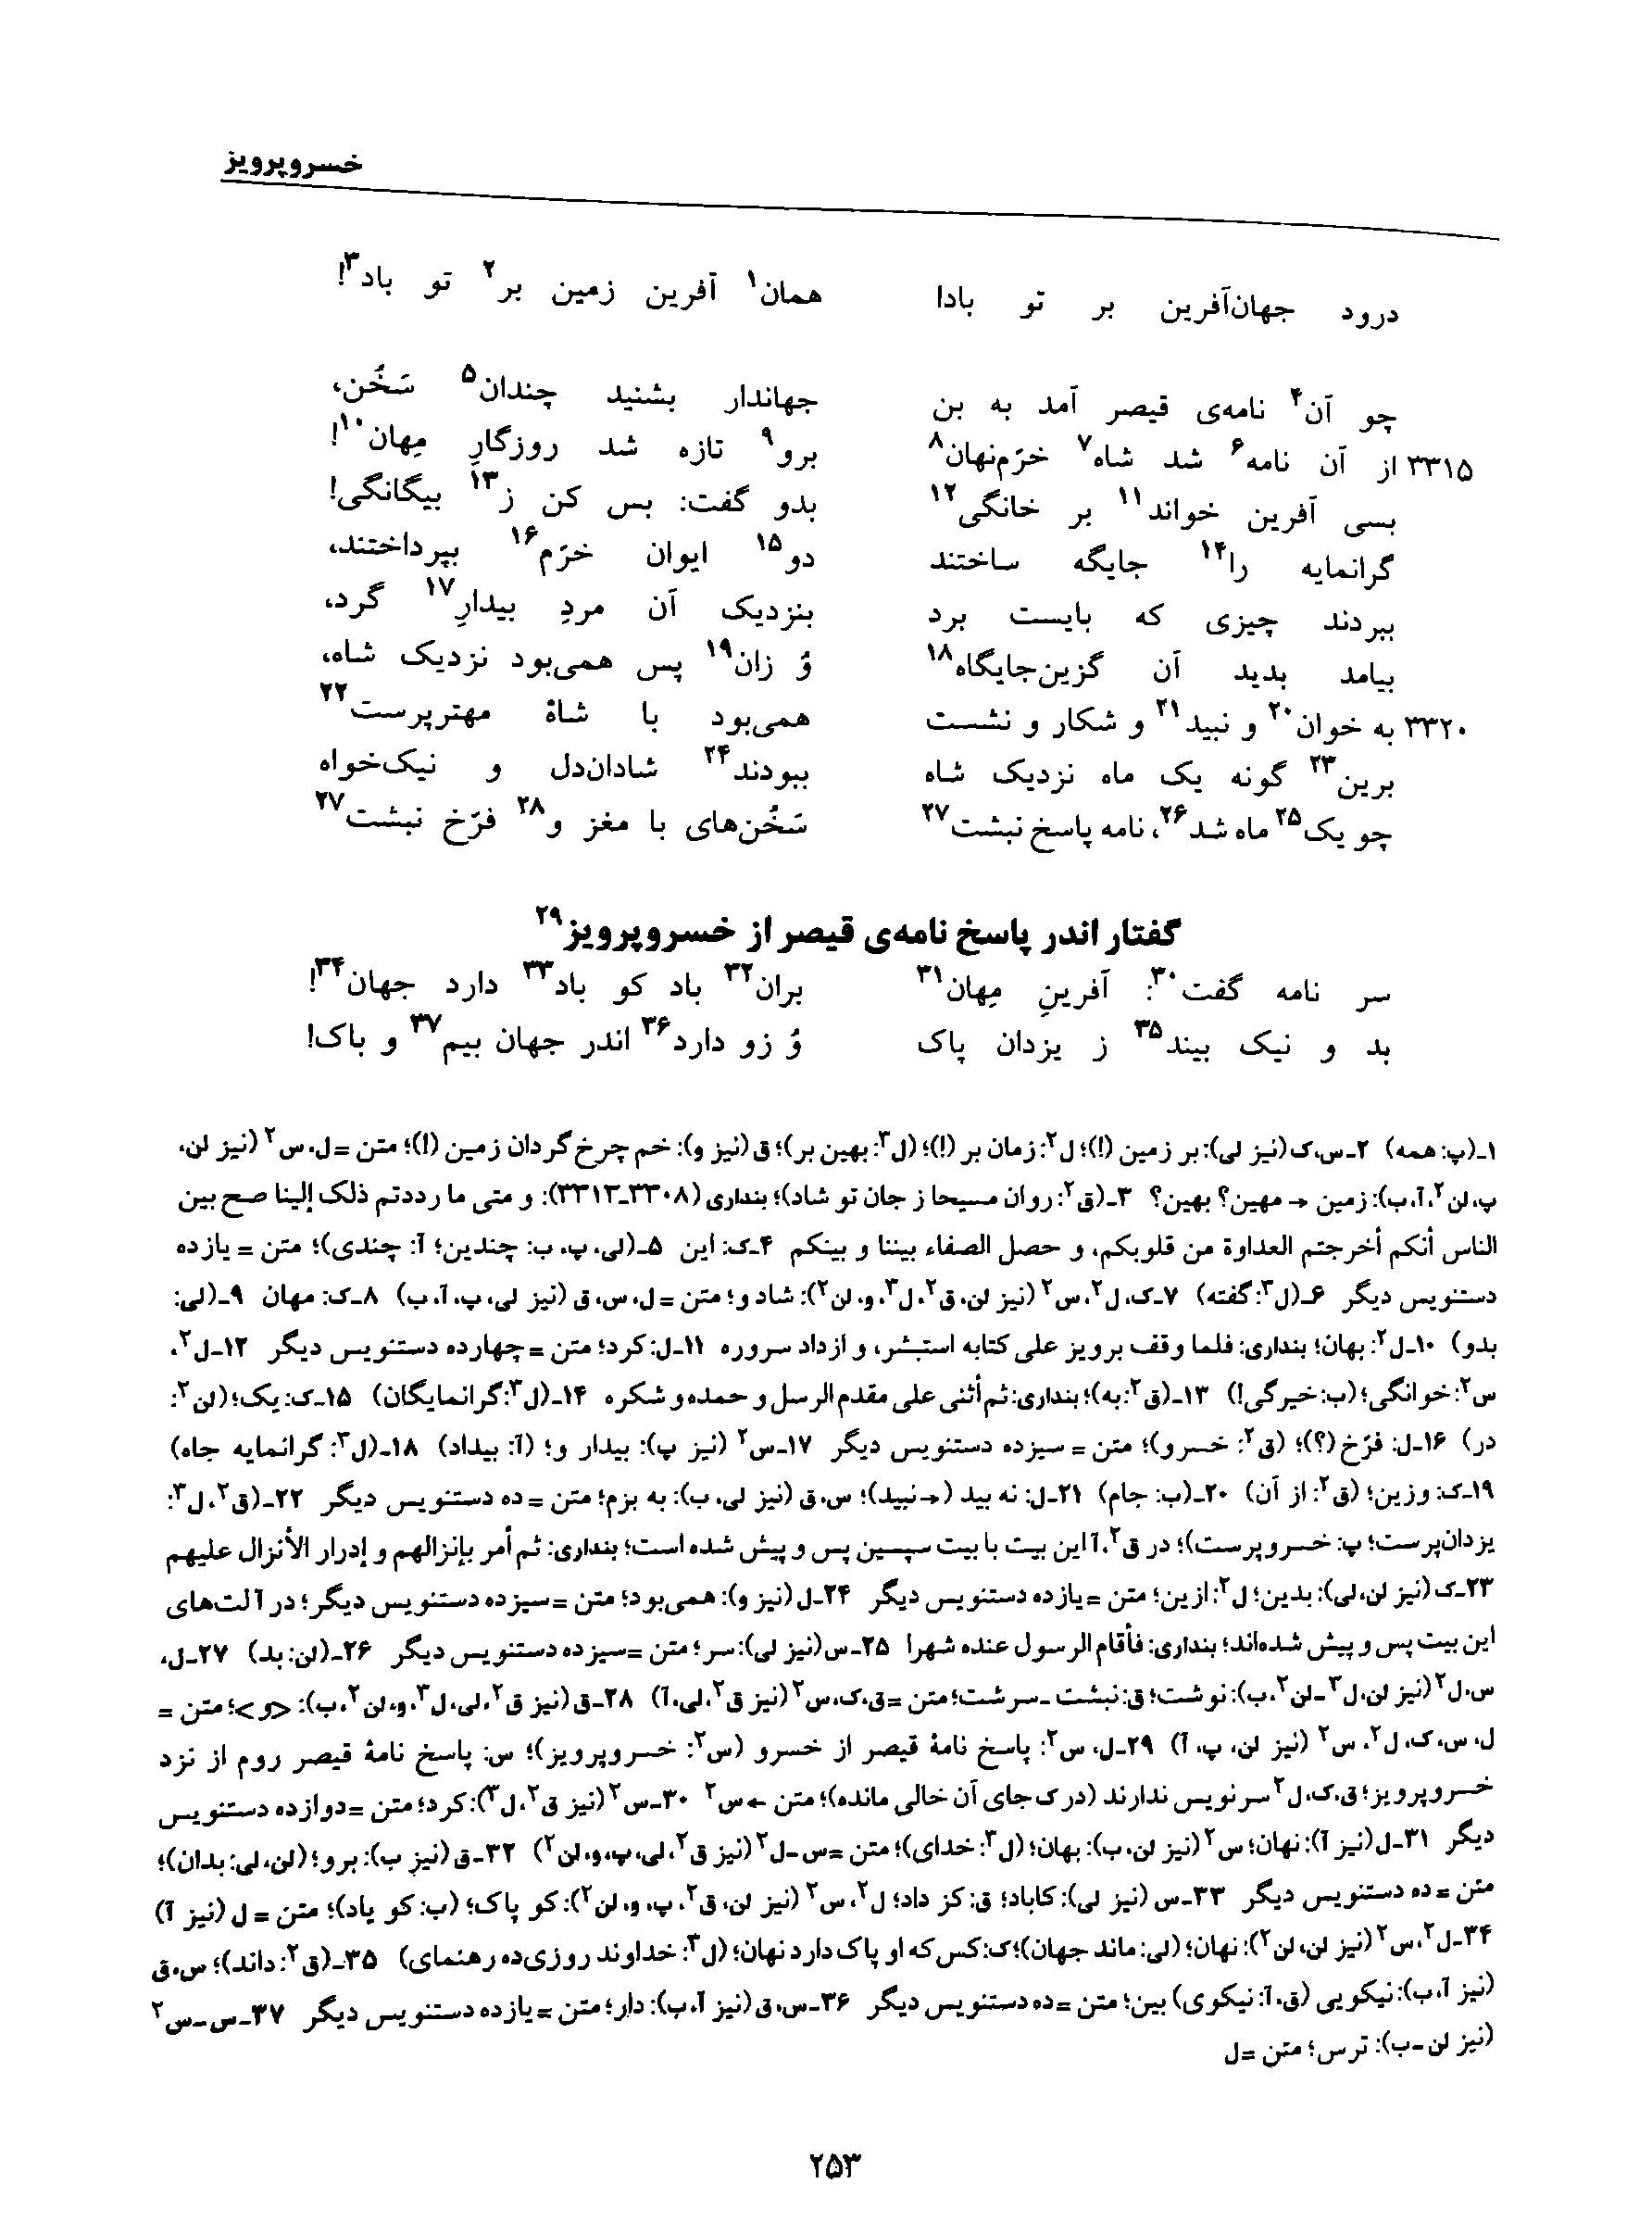 خسروپرویز
درود جهان‌آفرین بر تو بادا همان۱ آفرین زمین بر۲ تو باد۳!
چو آن۴ نامه‌ی قیصر آمد به بن جهاندار بشنید چندان۵ سَخُن،
۳۳۱۵ از آن نامه۶ شد شاه۷ خرّم‌نهان۸ برو۹ تازه شد روزگارِ مِهان۱۰!
بسی آفرین خواند۱۱ بر خانگی۱۲ بدو گفت: بس کن ز۱۳ بیگانگی!
گرانمایه را۱۴ جایگه ساختند دو۱۵ ایوان خرّم۱۶ بپرداختند،
ببردند چیزی که بایست برد بنزدیک آن مردِ بیدارِ۱۷ گرد،
بیامد بدید آن گزین‌جایگاه۱۸ وُ زان۱۹ پس همی‌بود نزدیک شاه،
۳۳۲۰ به خوان۲۰ و نبید۲۱ و شکار و نشست همی‌بود با شاهْ مهترپرست۲۲
برین۲۳ گونه یک ماه نزدیک شاه ببودند۲۴ شادان‌دل و نیک‌خواه
چو یک۲۵ ماه شد۲۶، نامه پاسخ نبشت۲۷ سَخُن‌های با مغز و۲۸ فرّخ نبشت۲۷
گفتار اندر پاسخ نامه‌ی قیصر از خسروپرویز۲۹
سر نامه گفت۳۰: آفرینِ مِهان۳۱ بران۳۲ باد کو باد۳۳ دارد جهان۳۴!
بد و نیک بیند۳۵ ز یزدان پاک وُ زو دارد۳۶ اندر جهان بیم۳۷ و باک!
۱ـ(پ: همه) ۲ـ س، ک (نیز لی): بر زمین (!)؛ ل۲: زمان بر (!)؛ (ل۳: بهین بر)؛ ق (نیز و): خم چرخ گردان زمین (!)؛ متن = ل، س۲ (نیز لن،
پ، لن۲، آ، ب): زمین → مهین؟ بهین؟ ۳ـ(ق۲: روان مسیحا ز جان تو شاد)؛ بنداری (۳۳۰۸ـ۳۳۱۳): و متی ما رددتم ذلک إلینا صح بین
الناس أنکم أخرجتم العداوة من قلوبکم، و حصل الصفاء بیننا و بینکم ۴ـ ک: این ۵ـ(لی، پ، ب: چندین؛ آ: چندی)؛ متن = یازده
دستنویس دیگر ۶ـ(ل۳: گفته) ۷ـ ک، ل۲، س۲ (نیز لن، ق۲، ل۳، و، لن۲): شاد و؛ متن = ل، س، ق (نیز لی، پ، آ، ب) ۸ـ ک: مهان ۹ـ(لی:
بدو) ۱۰ـ ل۲: بهان؛ بنداری: فلما وقف برویز علی کتابه استبشر، و ازداد سروره ۱۱ـ ل: کرد؛ متن = چهارده دستنویس دیگر ۱۲ـ ل۲،
س۲: خوانگی؛ (ب: خیرگی!) ۱۳ـ(ق۲: به)؛ بنداری: ثم أثنی علی مقدم الرسل و حمده و شکره ۱۴ـ(ل۳: گرانمایگان) ۱۵ـ ک: یک؛ (لن۲:
در) ۱۶ـ ل: فرّخ (؟)؛ (ق۲: خسرو)؛ متن = سیزده دستنویس دیگر ۱۷ـ س۲ (نیز پ): بیدار و؛ (آ: بیداد) ۱۸ـ(ل۳: گرانمایه جاه)
۱۹ـ ک: وزین؛ (ق۲: از آن) ۲۰ـ(ب: جام) ۲۱ـ ل: نه بید (→ نبید)؛ س، ق (نیز لی، ب): به بزم؛ متن = ده دستنویس دیگر ۲۲ـ(ق۲، ل۳:
یزدان‌پرست؛ پ: خسروپرست)؛ در ق۲، آ این بیت با بیت سپسین پس و پیش شده است؛ بنداری: ثم أمر بإنزالهم و إدرار الأنزال علیهم
۲۳ـ ک (نیز لن، لی): بدین؛ ل۲: ازین؛ متن = یازده دستنویس دیگر ۲۴ـ ل (نیز و): همی‌بود؛ متن = سیزده دستنویس دیگر؛ در آ لت‌های
این بیت پس و پیش شده‌اند؛ بنداری: فأقام الرسول عنده شهرا ۲۵ـ س (نیز لی): سر؛ متن = سیزده دستنویس دیگر ۲۶ـ(لن: بد) ۲۷ـ ل،
س، ل۲ (نیز لن، ل۳ـ لن۲، ب): نوشت؛ ق: نبشت ـ سرشت؛ متن = ق، ک، س۲ (نیز ق۲، لی، آ) ۲۸ـ ق (نیز ق۲، لی، ل۳، و، لن۲، ب): <و>؛ متن =
ل، س، ک، ل۲، س۲ (نیز لن، پ، آ) ۲۹ـ ل، س۲: پاسخ نامهٔ قیصر از خسرو (س۲: خسروپرویز)؛ س: پاسخ نامهٔ قیصر روم از نزد
خسروپرویز؛ ق، ک، ل۲ سرنویس ندارند (در ک جای آن خالی مانده)؛ متن ← س۲ ۳۰ـ س۲ (نیز ق۲، ل۳): کرد؛ متن = دوازده دستنویس
دیگر ۳۱ـ ل (نیز آ): نهان؛ س۲ (نیز لن، ب): بهان؛ (ل۳: خدای)؛ متن = س ـ ل۲ (نیز ق۲، لی، پ، و، لن۲) ۳۲ـ ق (نیز ب): برو؛ (لن، لی: بدان)؛
متن = ده دستنویس دیگر ۳۳ـ س (نیز لی): کاباد؛ ق: کز داد؛ ل۲، س۲ (نیز لن، ق۲، پ، و، لن۲): کو پاک؛ (ب: کو یاد)؛ متن = ل (نیز آ)
۳۴ـ ل۲، س۲ (نیز لن، لن۲): نهان؛ (لی: ماند جهان)؛ ک: کس که او پاک دارد نهان؛ (ل۳: خداوند روزی‌ده رهنمای) ۳۵ـ(ق۲: داند)؛ س، ق
(نیز آ، ب): نیکویی (ق، آ: نیکوی) بین؛ متن = ده دستنویس دیگر ۳۶ـ س، ق (نیز آ، ب): دار؛ متن = یازده دستنویس دیگر ۳۷ـ س ـ س۲
(نیز لن ـ ب): ترس؛ متن = ل
۲۵۳